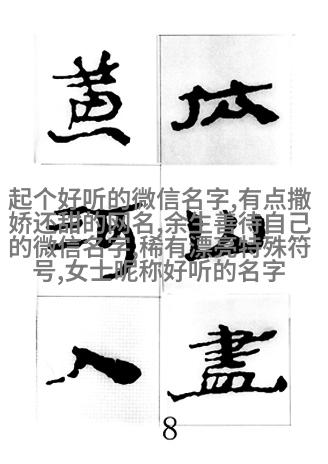 依山盡
黃河入
起个好听的微信名字,有点撒
娇还甜的网名,余生善待自己
的微信名字,稀有漂亮特殊符
号,女士昵称好听的名字
8